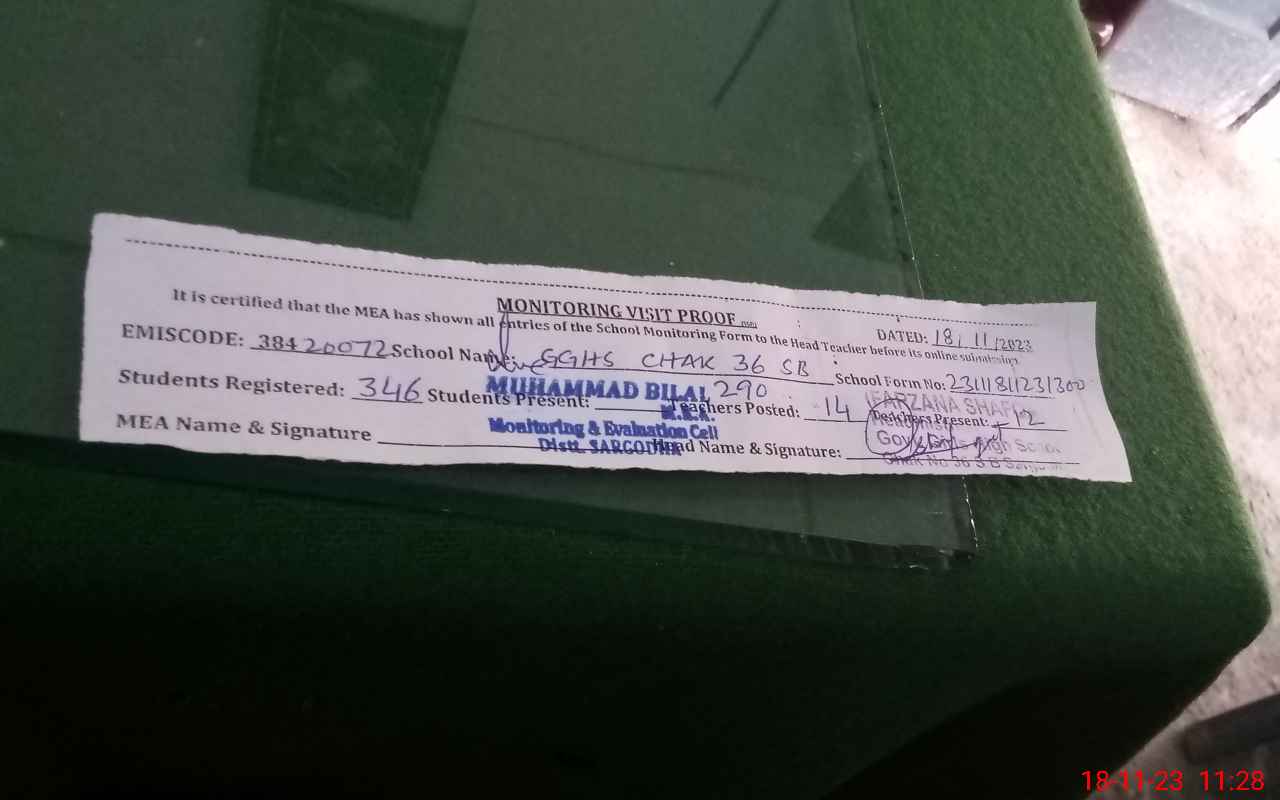 MONITORING VISIT PROOF
DATED: 18/11/2023
It is certified that the MEA has shown all entries of the School Monitoring Form to the Head Teacher before its online submission.
EMISCODE: 38420072 School Name: GGHS CHAK 36 SB School Form No: 23111811231300
Students Registered: 346 Students Present: 290 Teachers Posted: 14 Teachers Present: 12
MEA Name & Signature Head Name & Signature:
MUHAMMAD BILAL
M.E.A.
Monitoring & Evaluation Cell
Distt. SARGODHA
FARZANA SHAFI
High School
Chak No 36 S B
18-11-23 11:28